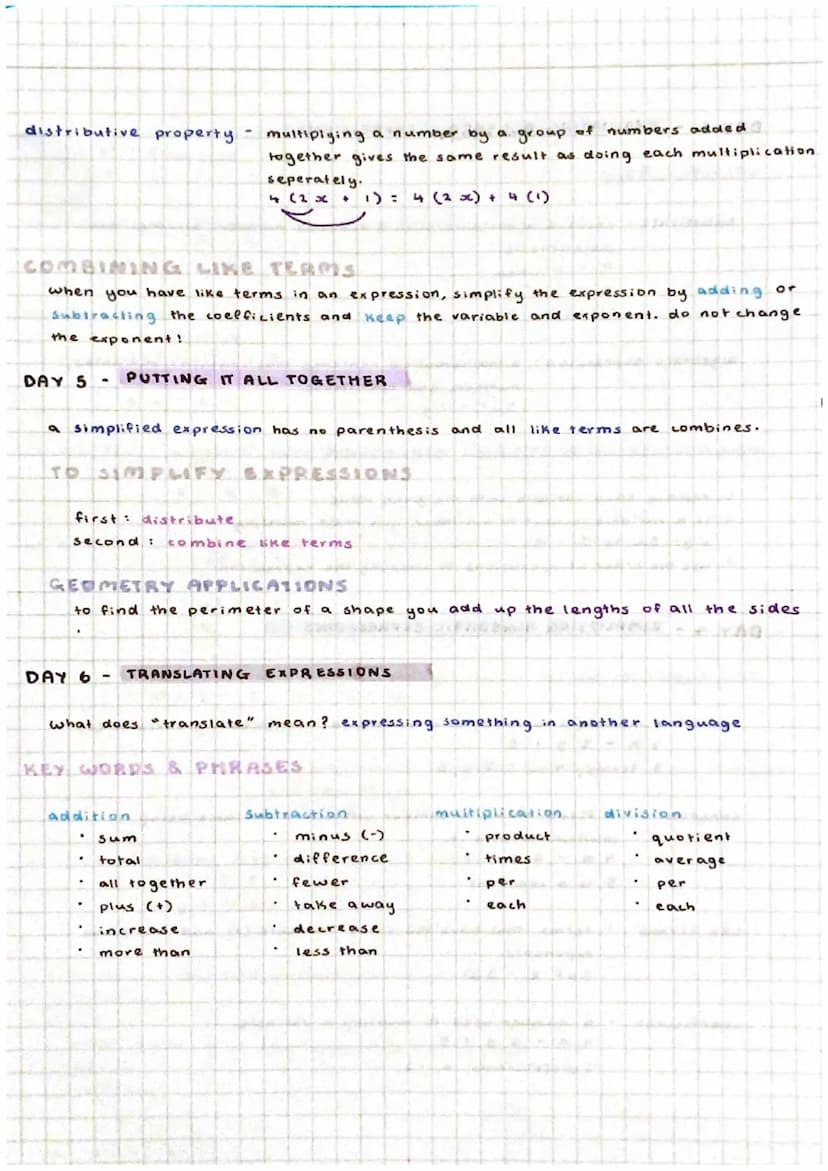 distributive property - multiplying a number by a group of numbers added
together gives the same result as doing each multiplication
seperately.
4 (2x + 1) = 4 (2x) + 4 (1)
COMBINING LIKE TERMS
when you have like terms in an expression, simplify the expression by adding or
subtracting the coefficients and keep the variable and exponent. do not change
the exponent!
DAY 5 - PUTTING IT ALL TOGETHER
a simplified expression has no parenthesis and all like terms are combines.
TO SIMPLIFY EXPRESSIONS
first: distribute
second: combine like terms
GEOMETRY APPLICATIONS
to find the perimeter of a shape you add up the lengths of all the sides
.
DAY 6 - TRANSLATING EXPRESSIONS
what does "translate" mean? expressing something in another language
KEY WORDS & PHRASES
addition subtraction multiplication division
• sum • minus (-) • product • quotient
• total • difference • times • average
• all together • fewer • per • per
• plus (+) • take away • each • each
• increase • decrease
• more than • less than